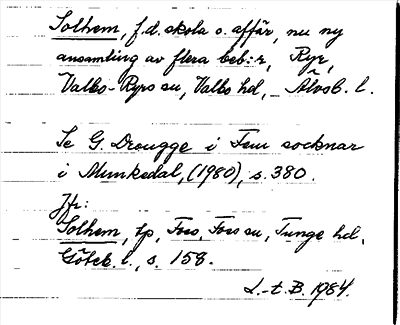 Solhem, f.d. skola o. affär, nu ny
ansamling av flera beb:r, Ryr,
Valbo-Ryrs sn, Valbo hd, Älvsb. l.
Se G. Drougge i Fem socknar
i Munkedal, (1980), s. 380.
Jfr:
Solhem, tp, Foss, Foss sn, Tunge hd,
Göteb. l., s. 158.
L-t. B. 1984.